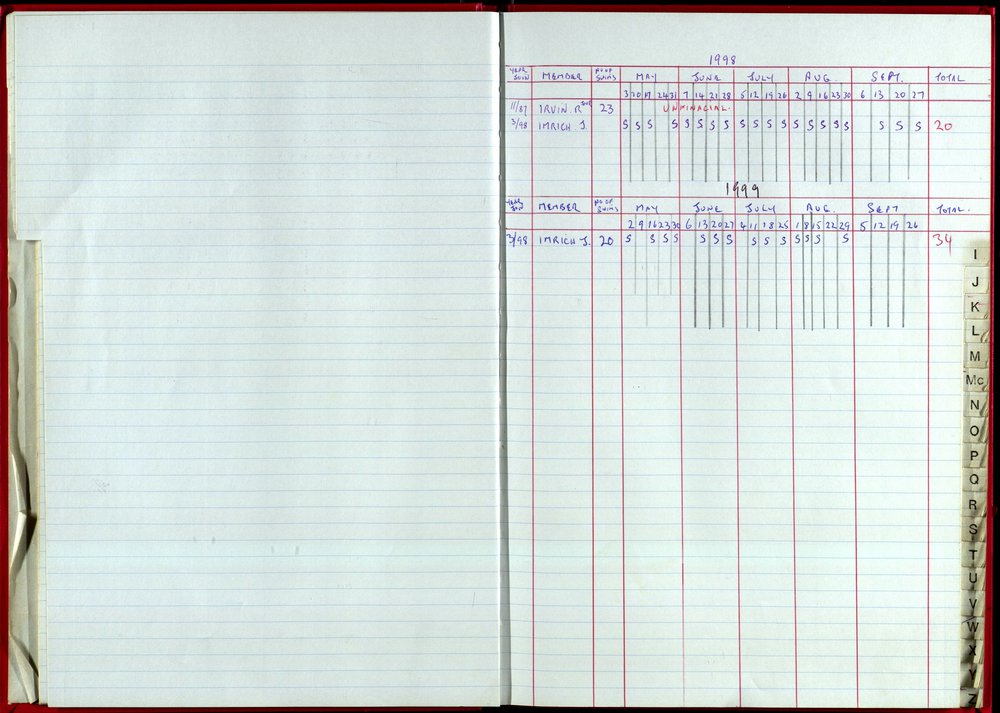 1998
YEAR JOIN MEMBER NO OF SWIMS MAY JUNE JULY AUG. SEPT. TOTAL
3 10 17 24 31 7 14 21 28 5 12 19 26 2 9 16 23 30 6 13 20 27
11/87 IRVIN. R 23 UNFINACIAL.
3/98 IMRICH J. S S S S S S S S S S S S S S S S S S S S 20
1999
YEAR JOIN MEMBER NO OF SWIMS MAY JUNE JULY AUG. SEPT TOTAL.
2 9 16 23 30 6 13 20 27 4 11 18 25 1 8 15 22 29 5 12 19 26
3/98 IMRICH J. 20 S S S S S S S S S S S S S S 34
I
J
K
L
M
Mc
N
O
P
Q
R
S
T
U
V
W
X
Y
Z